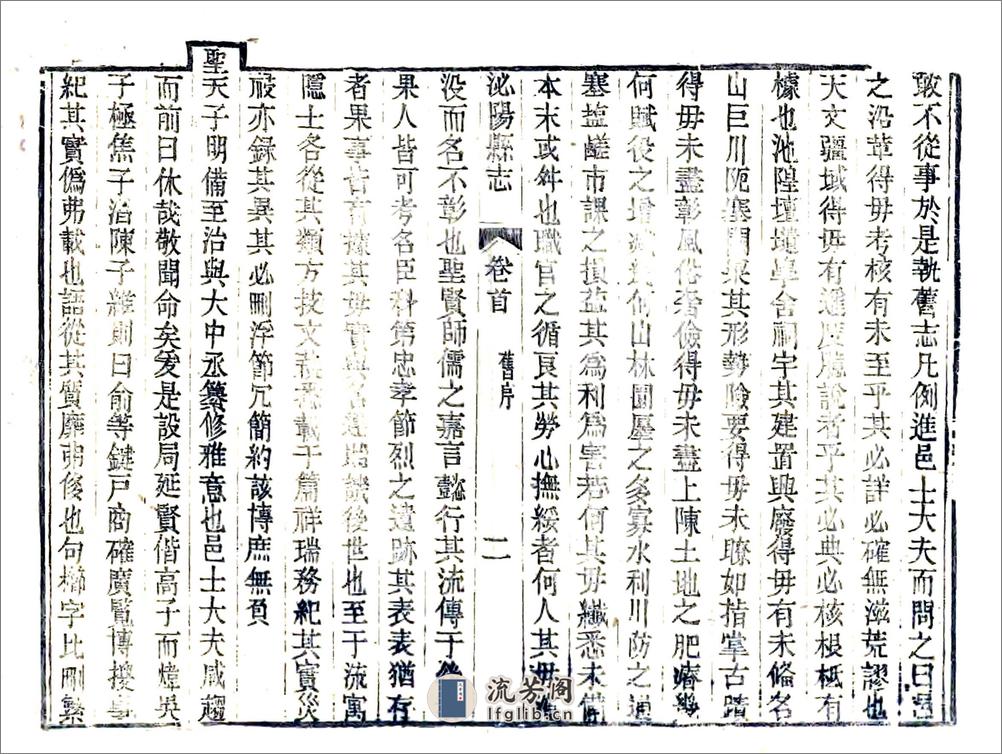 敢不從事於是執舊志凡例進邑士大夫而問之曰邑
之沿革得毋考核有未至乎其必詳必確無滋荒謬也
天文疆域得毋有遺度臆說者乎其必典必核根柢有
據也池隍壇壝學舍祠宇其建置興廢得毋有未備名
山巨川阨塞關泉其形勢險要得毋未瞭如指掌古蹟
得毋未盡彰風俗奢儉得毋未盡上陳土地之肥瘠幾
何賦役之增減幾何山林園廛之多寡水利川防之通
塞鹽鹺市課之損益其為利為害若何其毋纖悉未備
本末或舛也職官之循良其勞心撫綏者何人其毋
泌陽縣志
卷首
舊序
二
没而名不彰也聖賢師儒之嘉言懿行其流傳于
果人皆可考名臣科第忠孝節烈之遺跡其表表猶存
者果事皆有據其毋實與名違貽譏後世也至于流寓
隱士各從其類方技文悉載于篇祥瑞務紀其實災
祲亦錄其異其必刪浮節冗簡約該博庶無負
聖天子明備至治與大中丞纂修雅意也邑士大夫咸趨
而前曰休哉敬聞命矣爰是設局延賢偕高子而煒吳
子極焦子滔陳子維則曰俞等鍵戸商確廣覧博搜
紀其實僞弗載也語從其質靡弗俊也句櫛字比刪繁
流芳阁
lfglib.cn